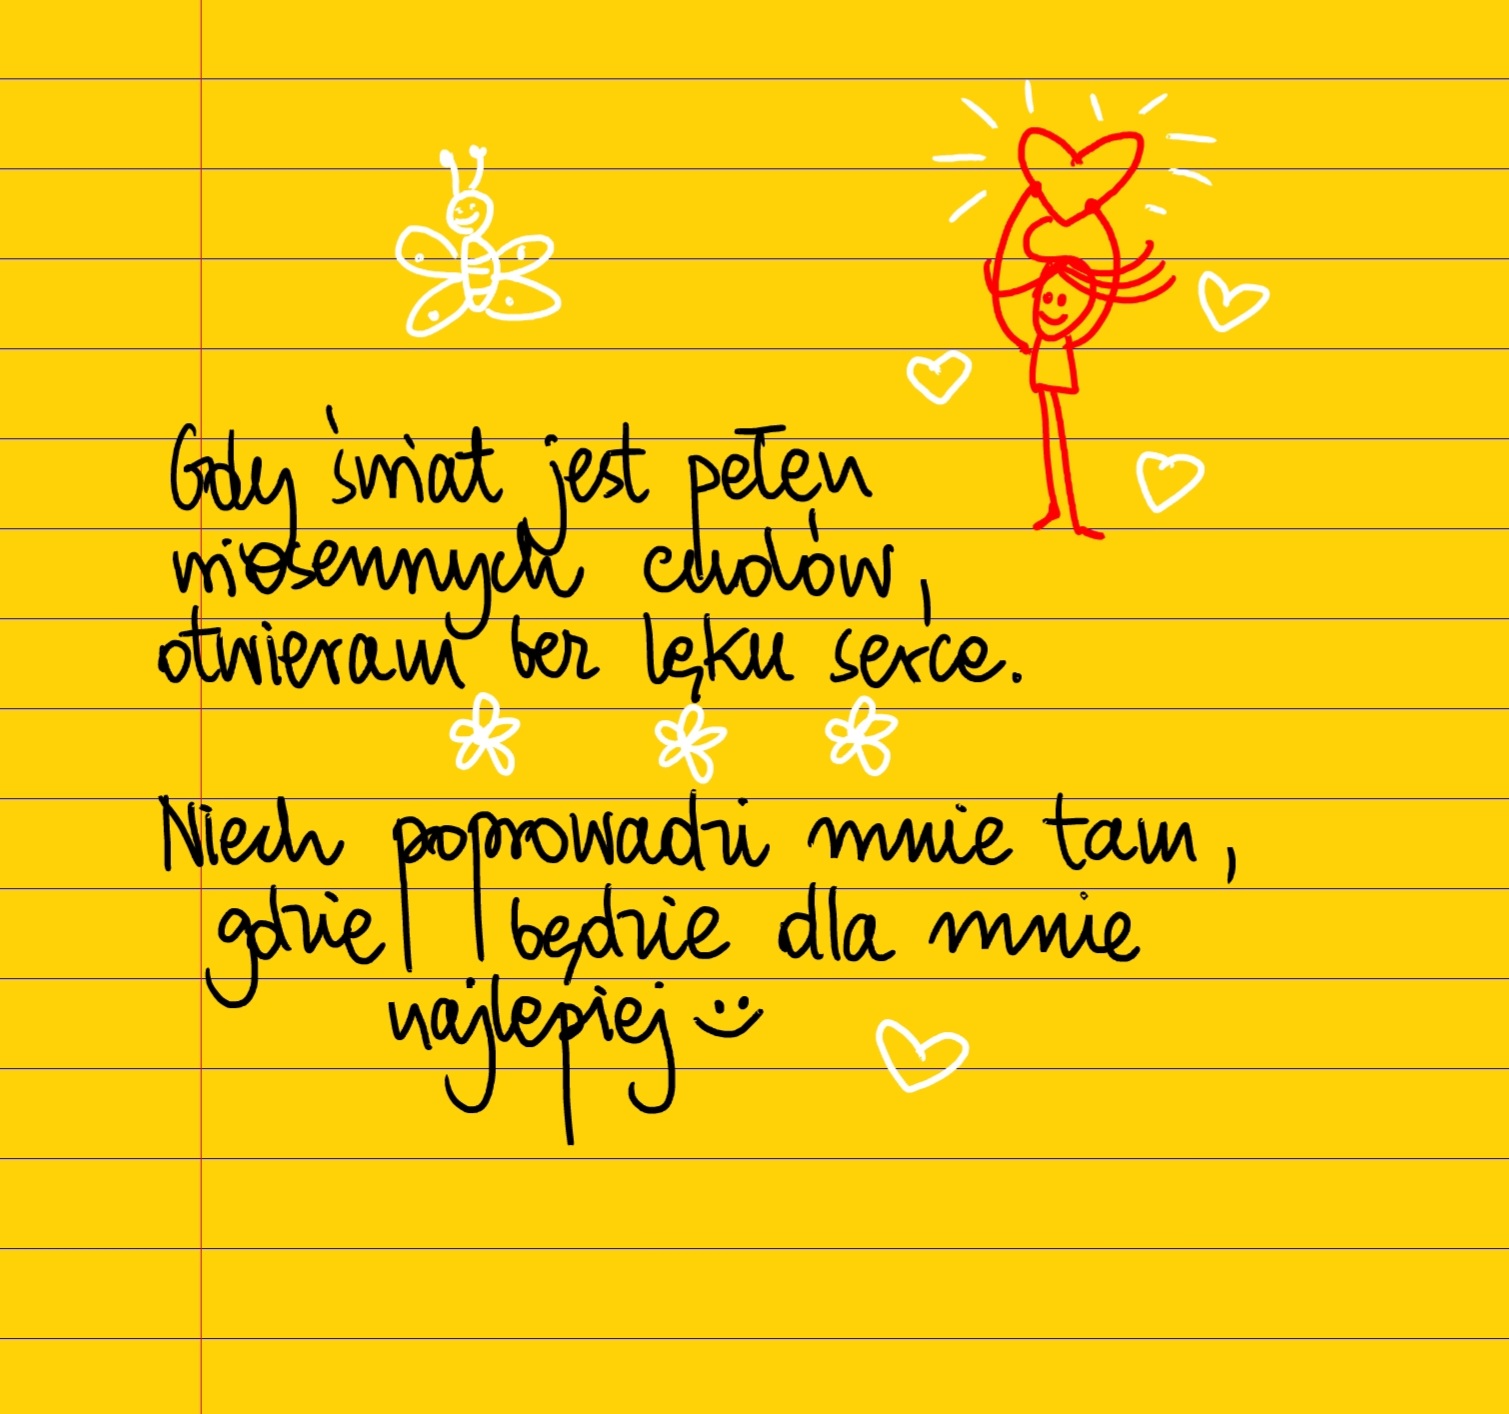 Gdy świat jest pełen
wiosennych cudów,
otwieram bez lęku serce.
Niech poprowadzi mnie tam,
gdzie będzie dla mnie
najlepiej :)